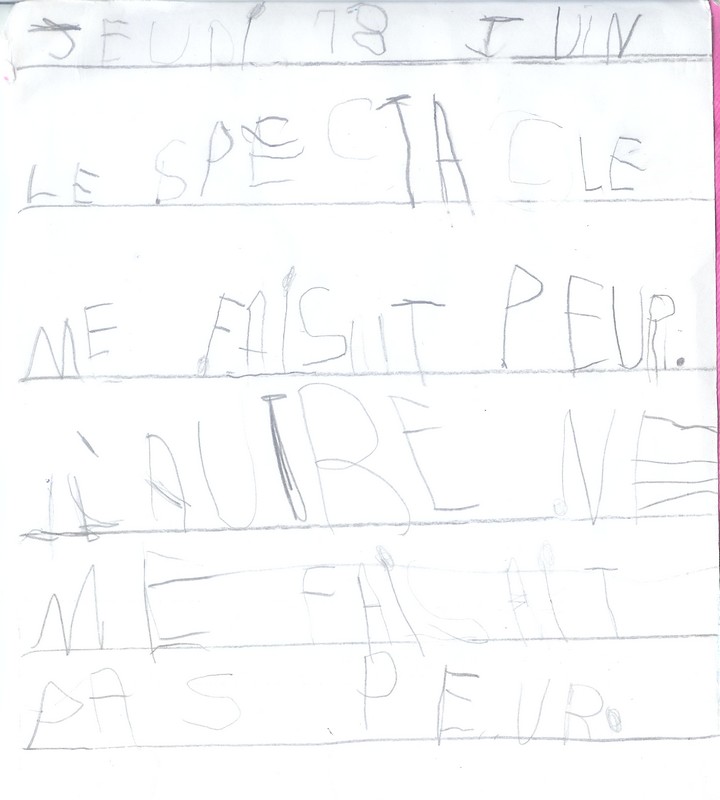 JEUDi 18 JUiN
LE SPECTACLE
ME FAiSAIT PEUR.
L'AUTRE NE
ME FAiSAiT
PAS PEUR.